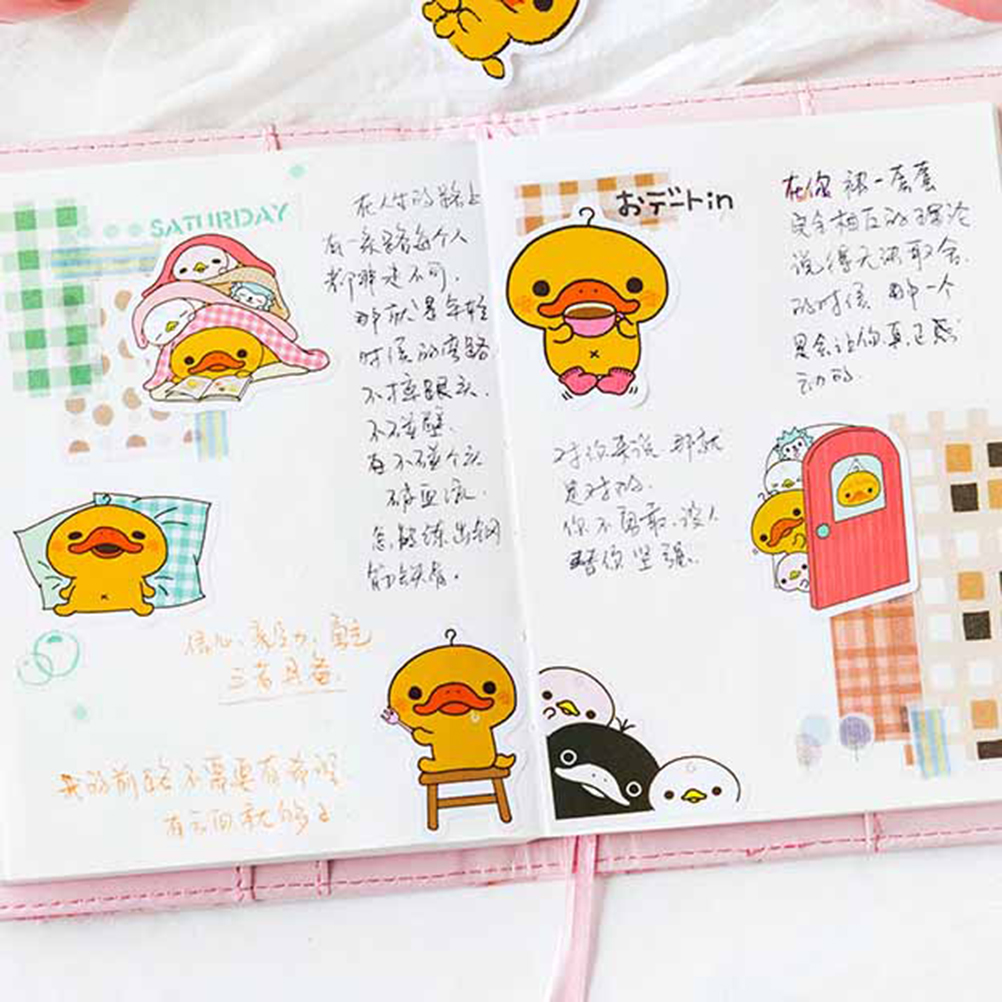 SATURDAY
在人生的路上
有一条路每个人
都非走不可，
那就是年轻
时候的弯路
不摔跟头，
不碰壁，
有不碰个头
破血流，
怎能炼出钢
筋铁骨。
信心、毅力、勇气
三者具备，
我的前路不需要有前程
有方向就够了
おデートin
在你被一套套
完全相反的理论
说得无法取舍
的时候 那一个
是会让你真正感
动的
对你来说 那就
是对的，
你不勇敢，没人
替你坚强。